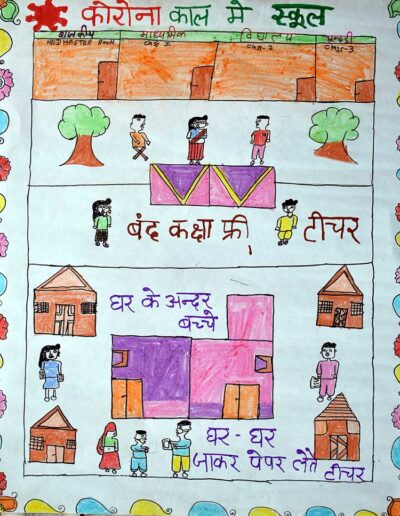 कोरोना काल मे स्कूल
राजकीय माध्यमिक विद्यालय
HEDMASTER ROOM Class-2 Class-3
बंद कक्षा फ्री, टीचर
घर के अन्दर
बच्चे
घर - घर
जाकर पेपर लेते टीचर